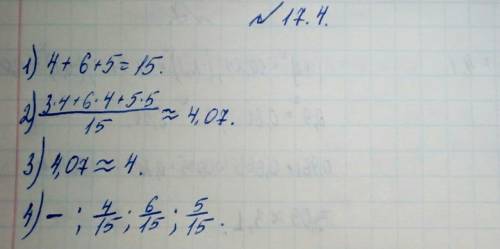 № 17.4.
1) 4+6+5=15.
2) (3·4+6·4+5·5)/15 ≈ 4,07.
3) 4,07 ≈ 4.
4) – ; 4/15 ; 6/15 ; 5/15.